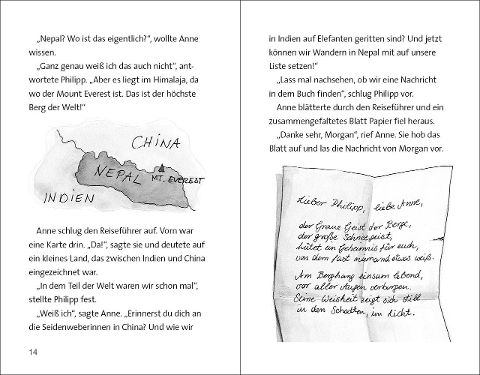 „Nepal? Wo ist das eigentlich?“, wollte Anne
wissen.
„Ganz genau weiß ich das auch nicht“, ant-
wortete Philipp. „Aber es liegt im Himalaja, da
wo der Mount Everest ist. Das ist der höchste
Berg der Welt!“
CHINA
NEPAL
MT. EVEREST
INDIEN
Anne schlug den Reiseführer auf. Vorn war
eine Karte drin. „Da!“, sagte sie und deutete auf
ein kleines Land, das zwischen Indien und China
eingezeichnet war.
„In dem Teil der Welt waren wir schon mal“,
stellte Philipp fest.
„Weiß ich“, sagte Anne. „Erinnerst du dich an
die Seidenweberinnen in China? Und wie wir
14
in Indien auf Elefanten geritten sind? Und jetzt
können wir Wandern in Nepal mit auf unsere
Liste setzen!“
„Lass mal nachsehen, ob wir eine Nachricht
in dem Buch finden“, schlug Philipp vor.
Anne blätterte durch den Reiseführer und ein
zusammengefaltetes Blatt Papier fiel heraus.
„Danke sehr, Morgan“, rief Anne. Sie hob das
Blatt auf und las die Nachricht von Morgan vor.
Lieber Philipp, liebe Anne,
der Graue Geist der Berge,
der große Schneegeist,
hütet ein Geheimnis für euch,
von dem fast niemand etwas weiß.
Am Berghang einsam lebend,
vor aller Augen verborgen.
Eine Weisheit zeigt sich still
in den Schatten, im Licht.